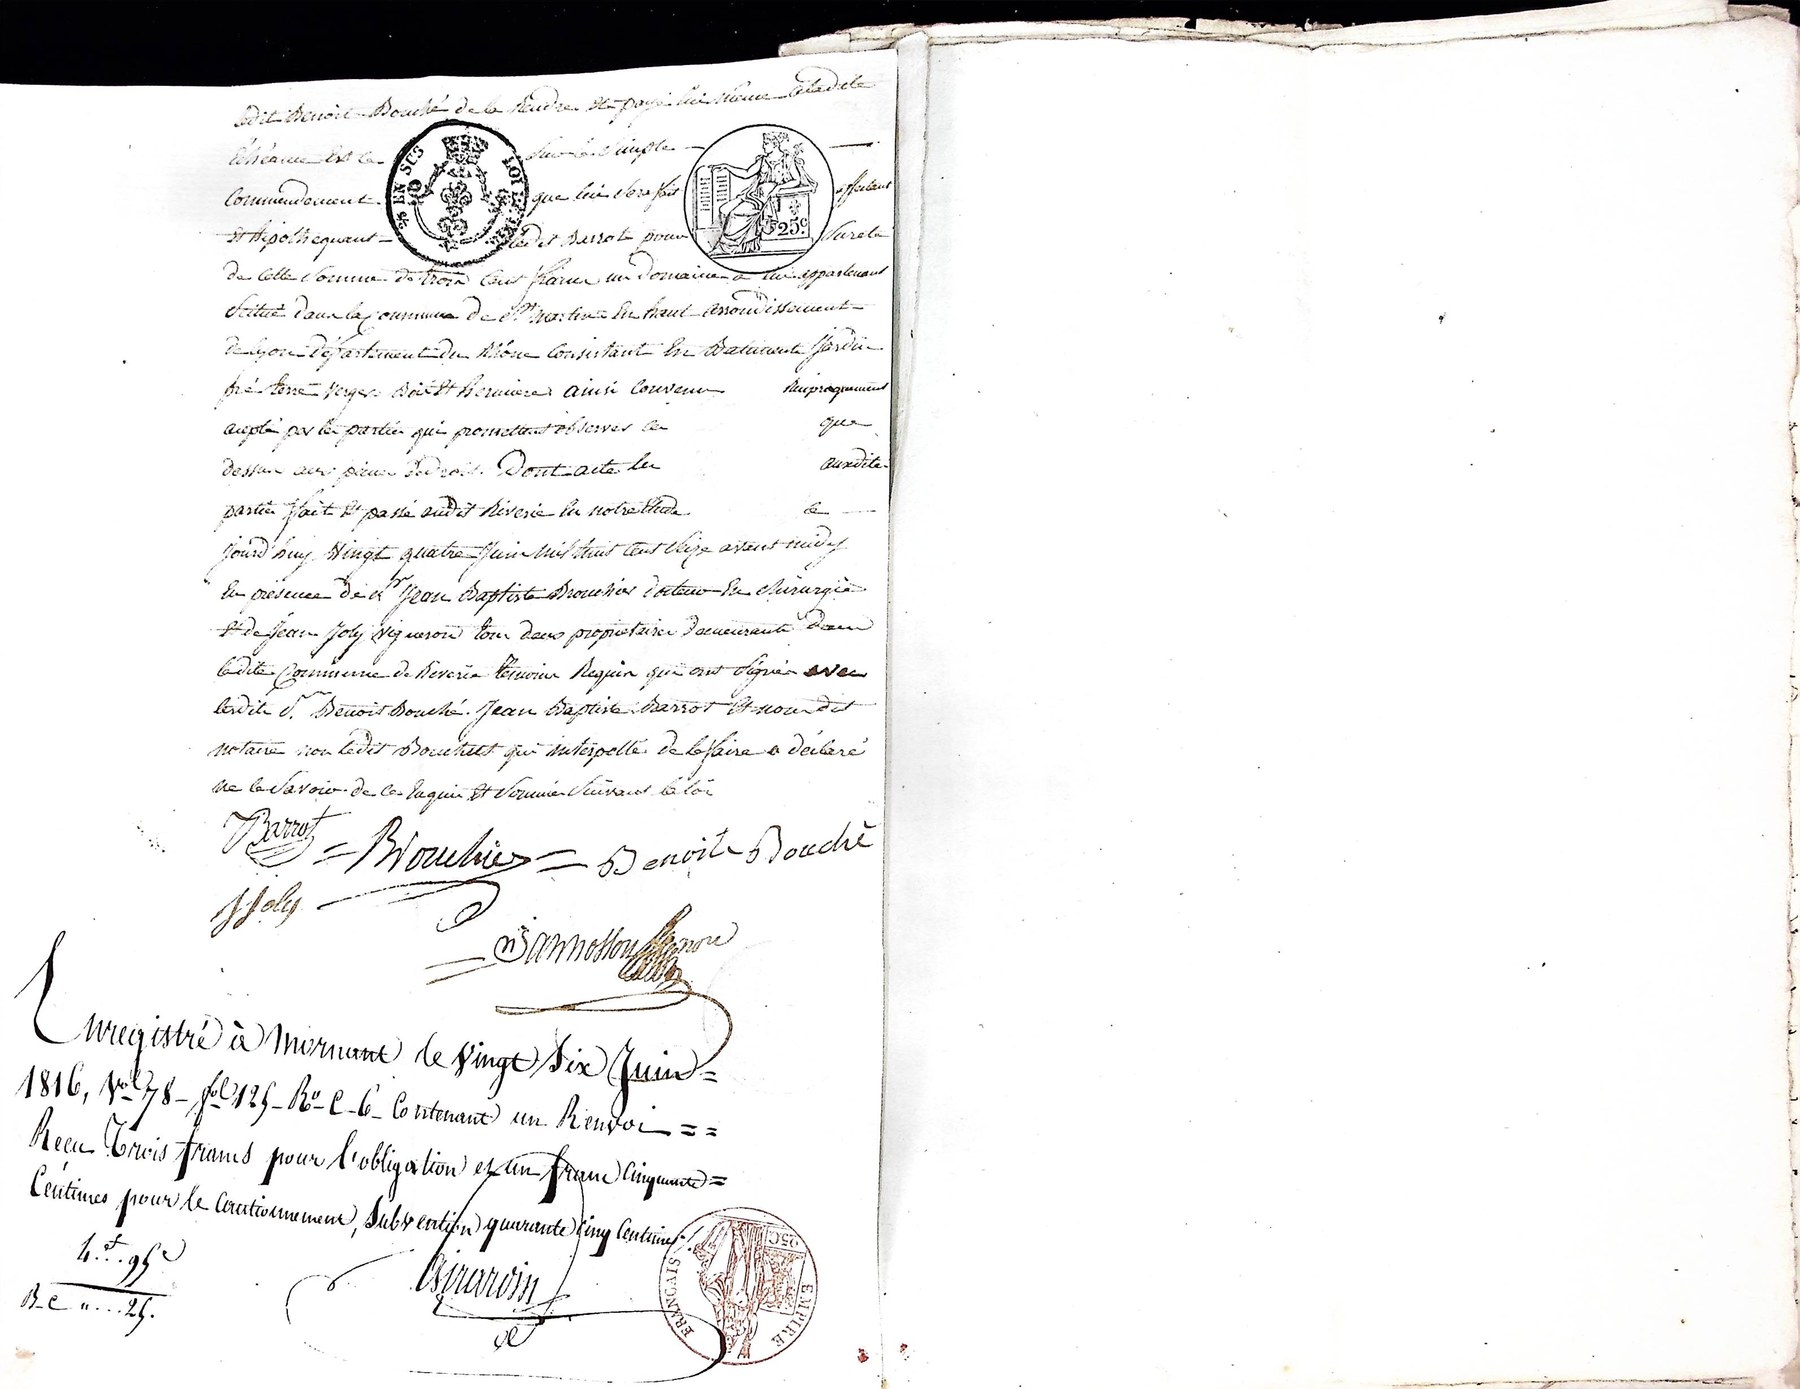 ledit Benoit Bouché de le Rendre et payé lui même à ladite
Échéance Est le sur le Simple
Commandement que lui sera fait affectant
Et hipothequant ledit Barrot pour Sureté
de cette Somme de trois Cent francs un Domaine a lui appartenant
Scitué dans la Commune de St. Martin En haut arrondissement
de Lyon département du Rhône Consistant En Batiments Jardin
pré terre verger Bois Et hermiere ainsi Convenu Reciproquement
acepté par les parties qui promettent observer ce que
dessus aux peines de droit. Dont acte les auxdite
partie fait Et passé audit Riverie En notre Etude le
jourd'huy Vingt quatre Juin Mil huit Cent Seize avant midy
En présence de Sr Jean Baptiste Brouchier docteur En chirurgie
Et de Jean Joly Vigneron tous deux proprietaires demeurants dans
ladite Commune de Riverie temoins Requis qui ont Signé avec
lesdits Sr. Benoit Bouché. Jean Baptiste Barrot Et nous dit
notaire non ledit Bouchut qui interpellé de le faire a déclaré
ne le Savoir de ce Enquis Et Sommé Suivant la loi
% EN SUS LOI
25c
JBarrot = Brouchier = Benoit Bouché
JJoly
Enregistré à Mornant le Vingt Six Juin =
1816, Vol 78 - fol 125 - Ro - C - 6 - Contenant un Renvoi = =
Recu Trois francs pour l'obligation et un franc Cinquante =
Centimes pour le Cautionnement, Subvention quarante Cinq Centimes
4.f..95c
B-C "...25.
EMPIRE FRANCAIS 25C